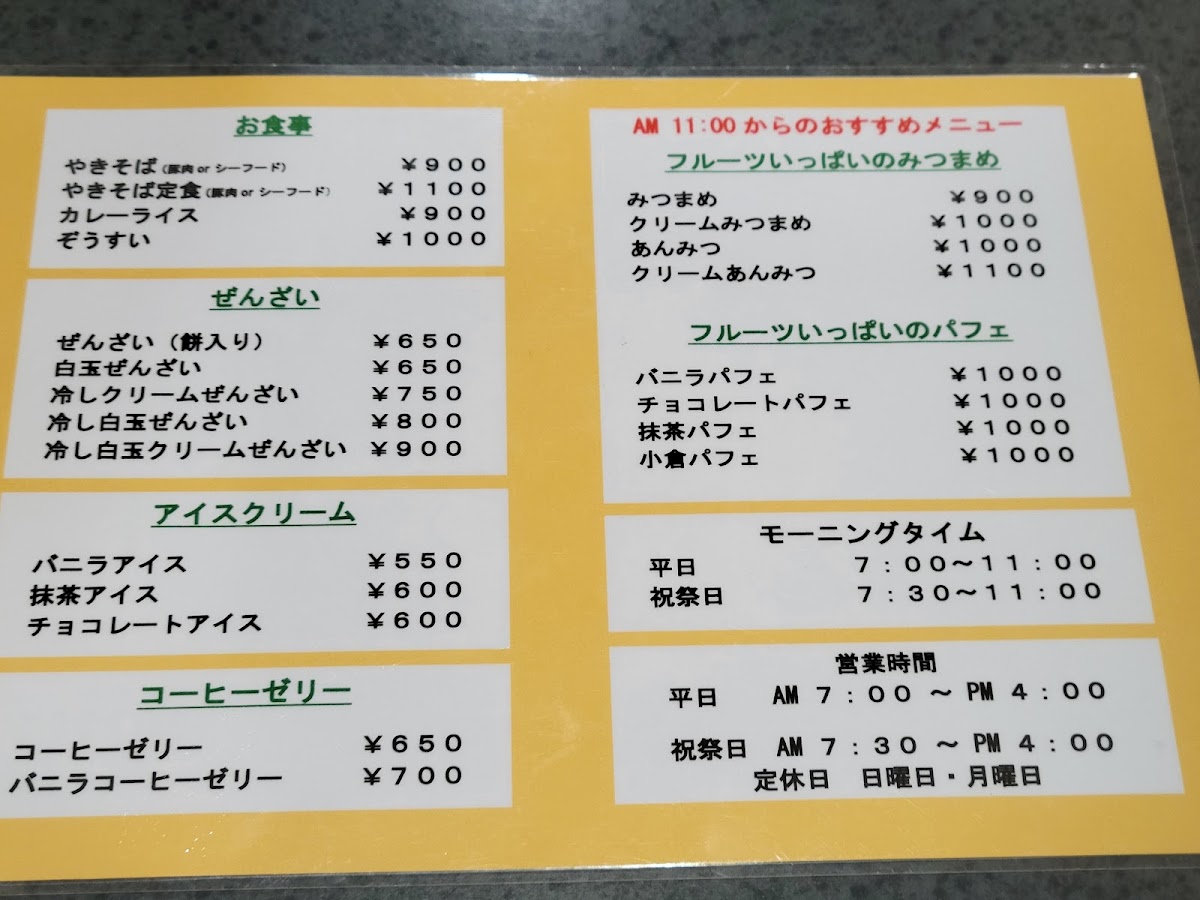 お食事
やきそば(豚肉 or シーフード) ￥９００
やきそば定食(豚肉 or シーフード) ￥１１００
カレーライス ￥９００
ぞうすい ￥１０００
ぜんざい
ぜんざい（餅入り） ￥６５０
白玉ぜんざい ￥６５０
冷しクリームぜんざい ￥７５０
冷し白玉ぜんざい ￥８００
冷し白玉クリームぜんざい ￥９００
アイスクリーム
バニラアイス ￥５５０
抹茶アイス ￥６００
チョコレートアイス ￥６００
コーヒーゼリー
コーヒーゼリー ￥６５０
バニラコーヒーゼリー ￥７００
AM 11:00 からのおすすめメニュー
フルーツいっぱいのみつまめ
みつまめ ￥９００
クリームみつまめ ￥１０００
あんみつ ￥１０００
クリームあんみつ ￥１１００
フルーツいっぱいのパフェ
バニラパフェ ￥１０００
チョコレートパフェ ￥１０００
抹茶パフェ ￥１０００
小倉パフェ ￥１０００
モーニングタイム
平日 ７：００～１１：００
祝祭日 ７：３０～１１：００
営業時間
平日 AM ７：００ ～ PM ４：００
祝祭日 AM ７：３０ ～ PM ４：００
定休日 日曜日・月曜日